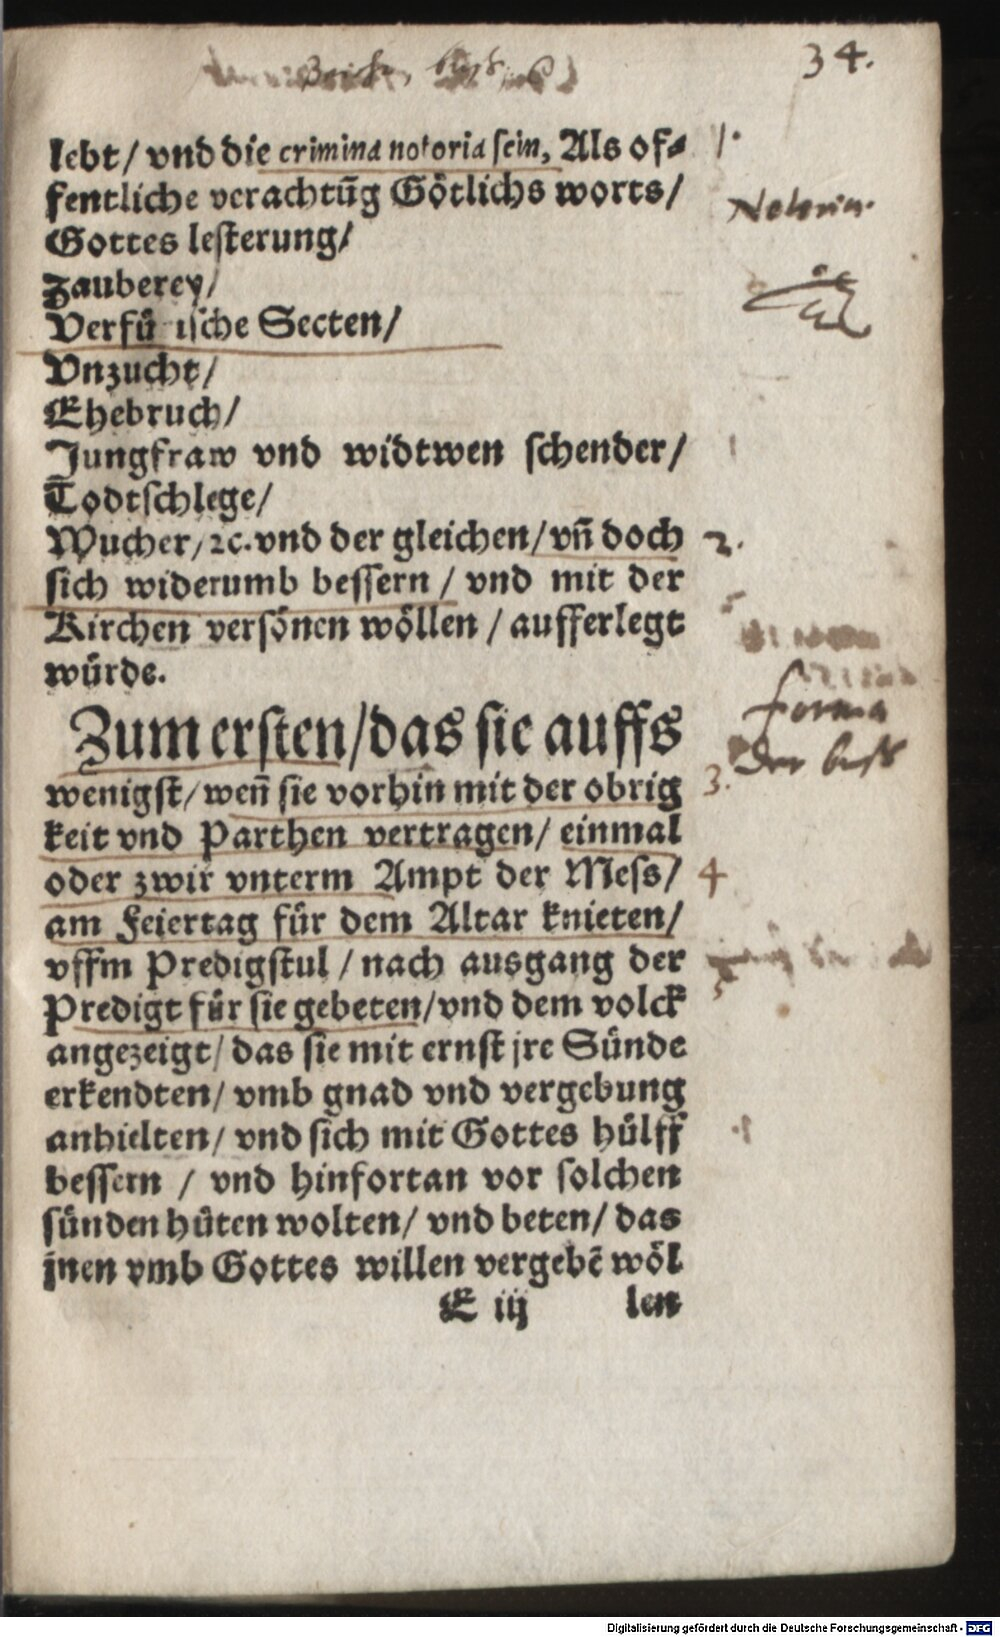 34.
lebt/ vnd die crimina notoria sein, Als of⸗
fentliche verachtūg Götlichs worts/
Gottes lesterung/
Zauberey/
Verfü ische Secten/
Vnzucht/
Ehebruch/
Jungfraw vnd widtwen schender/
Todtschlege/
Wucher/ ꝛc. vnd der gleichen/ vn̄ doch
sich widerumb bessern / vnd mit der
Kirchen versönen wöllen / aufferlegt
würde.
Zum ersten/ das sie auffs
wenigst/ wen̄ sie vorhin mit der obrig
keit vnd Parthen vertragen/ einmal
oder zwir vnterm Ampt der Mess/
am Feiertag für dem Altar knieten/
vffm Predigstul / nach ausgang der
Predigt für sie gebeten/ vnd dem volck
angezeigt/ das sie mit ernst jre Sünde
erkendten/ vmb gnad vnd vergebung
anhielten/ vnd sich mit Gottes hülff
bessern / vnd hinfortan vor solchen
sünden hüten wolten/ vnd beten/ das
jnen vmb Gottes willen vergebē wöl
E iij len
1.
Notoria.
2.
forma
der buß
3.
4
Digitalisierung gefördert durch die Deutsche Forschungsgemeinschaft - DFG